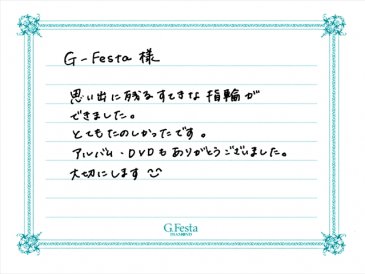 G-Festa 様
思い出に残るすてきな指輪が
できました。
とてもたのしかったです。
アルバム・DVDもありがとうございました。
大切にします
G.Festa